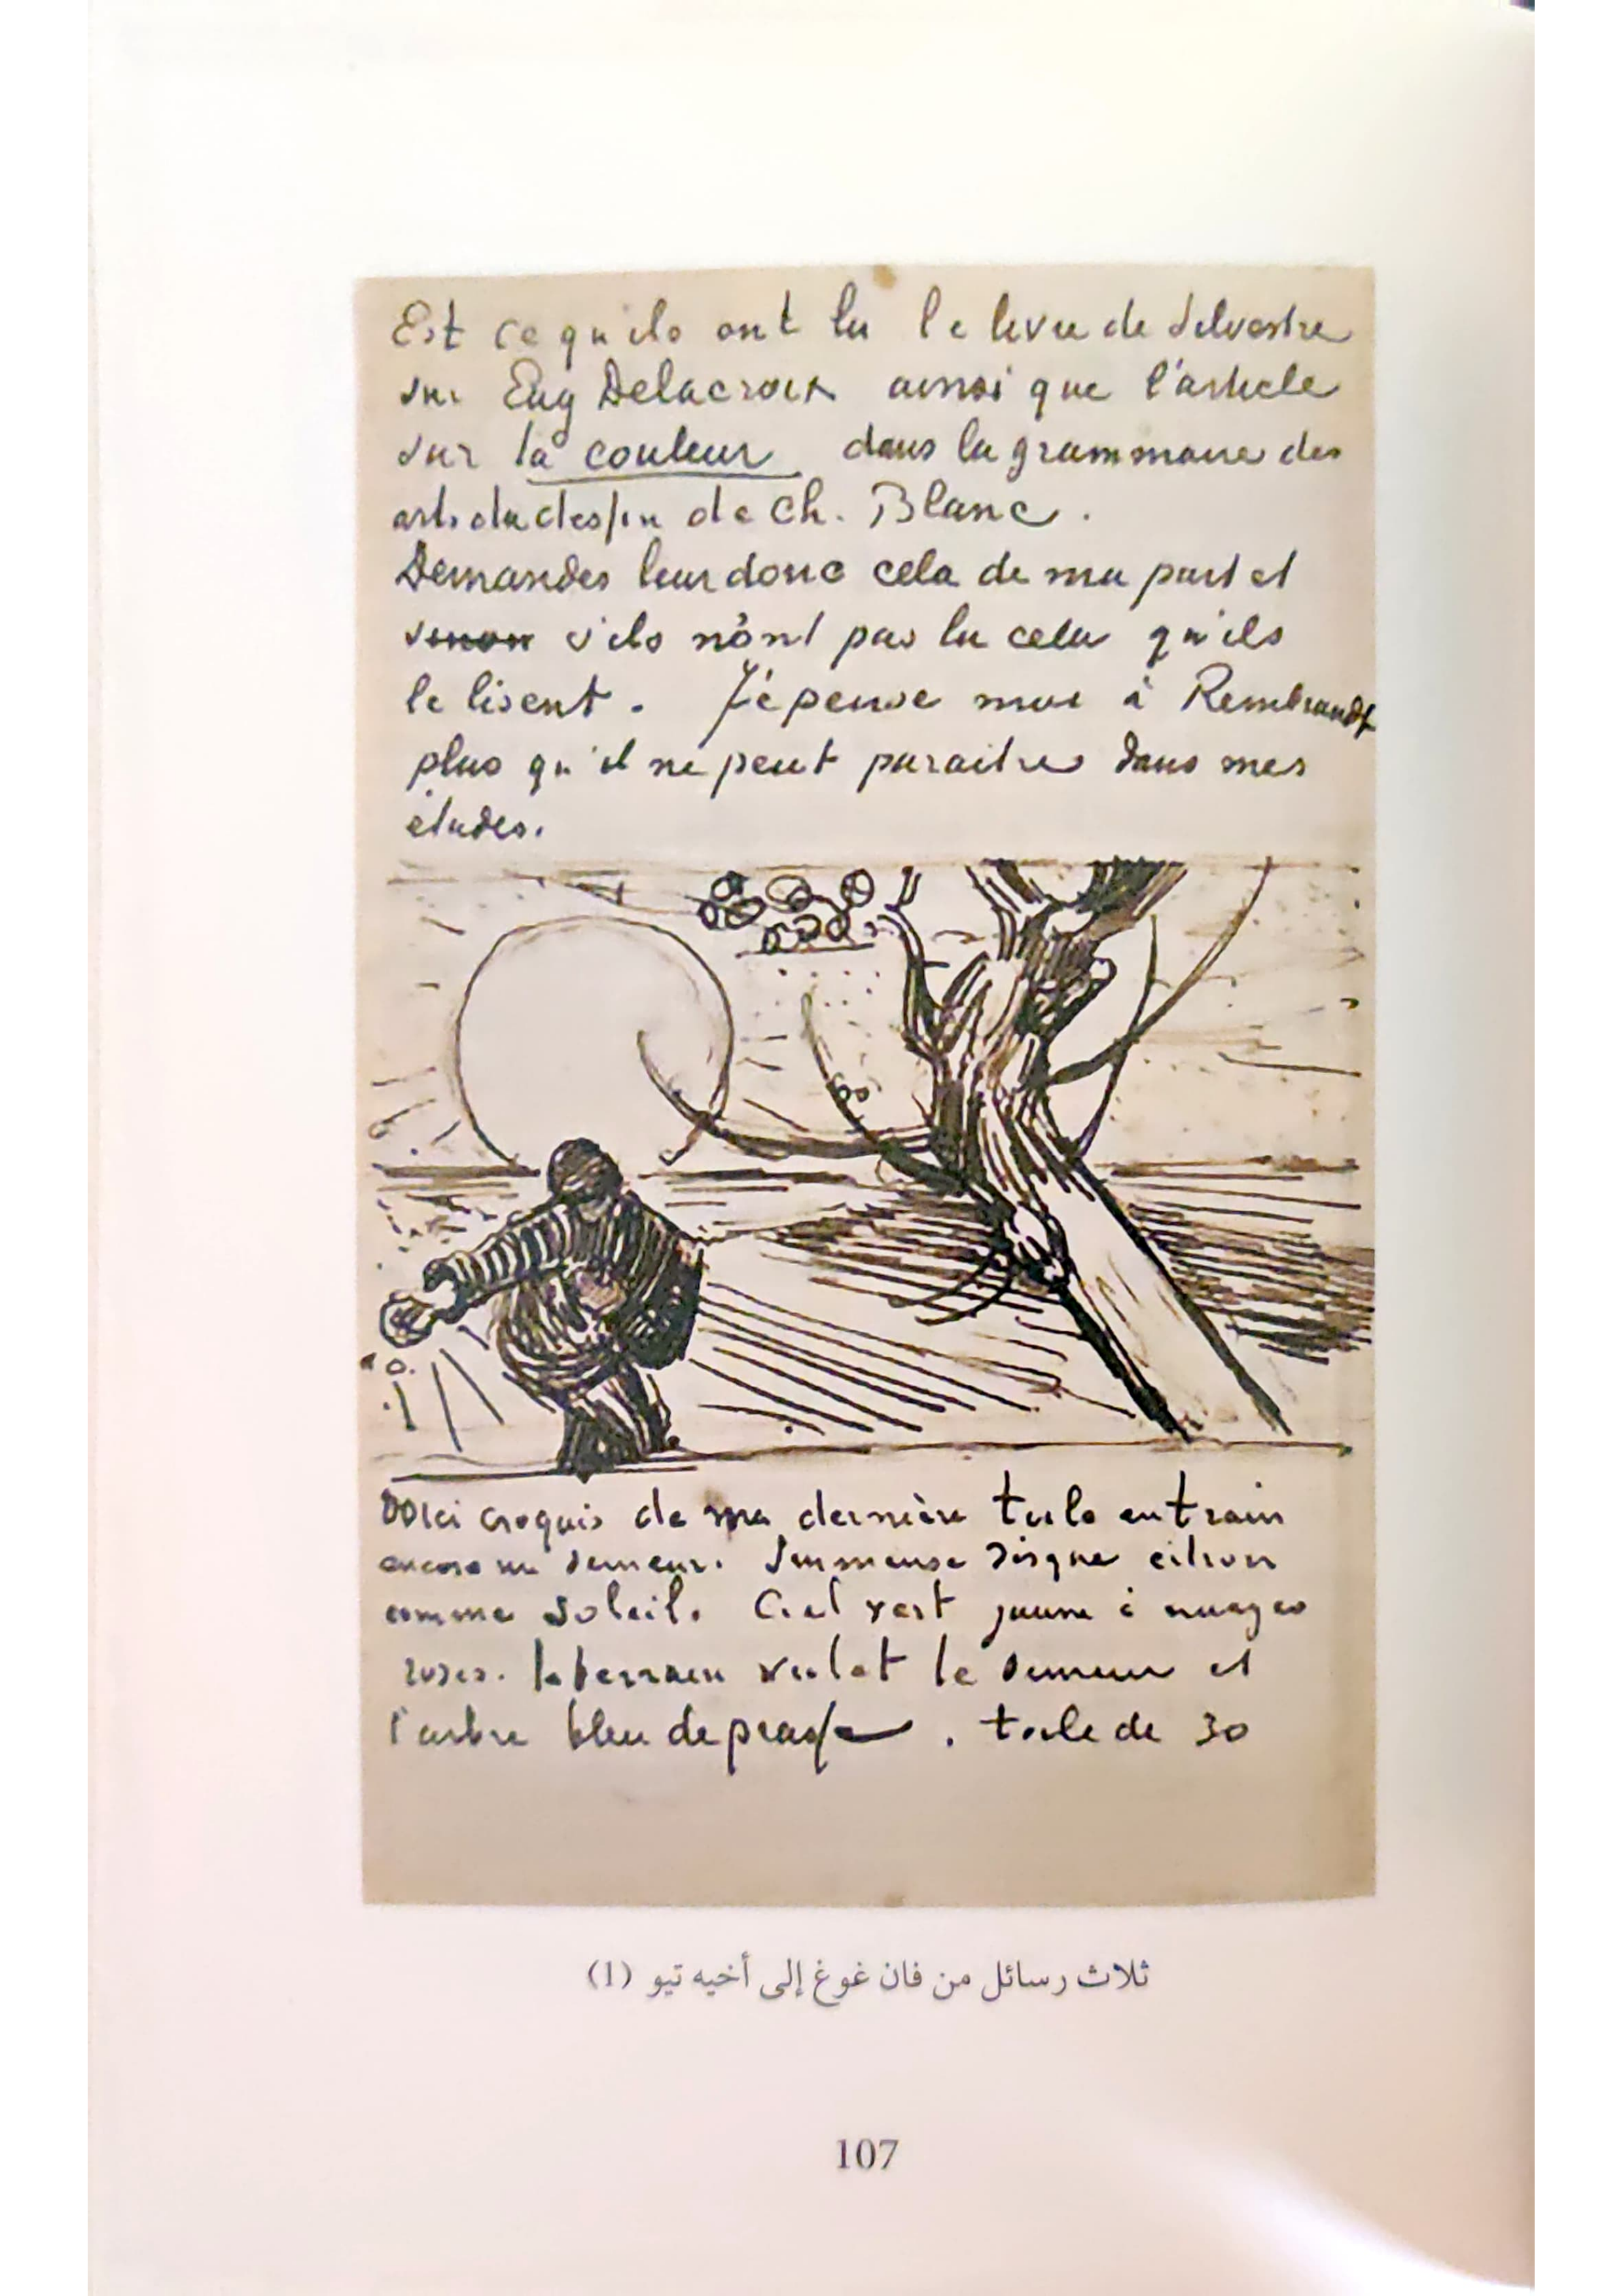 Est ce qu'ils ont lu le livre de Silvestre
sur Eug Delacroix ainsi que l'article
sur la couleur dans la grammaire des
arts du dessin de Ch. Blanc.
Demandes leur donc cela de ma part et
sinon s'ils n'ont pas lu cela qu'ils
le lisent. J'y pense moi à Rembrandt
plus qu'il ne peut paraitre dans mes
études.
Voici croquis de ma dernière toile en train
encore un semeur. Immense disque citron
comme soleil. Ciel vert jaune à nuages
roses. le terrain violet le semeur et
l'arbre bleu de prusse. toile de 30
ثلاث رسائل من فان غوغ إلى أخيه تيو (1)
107